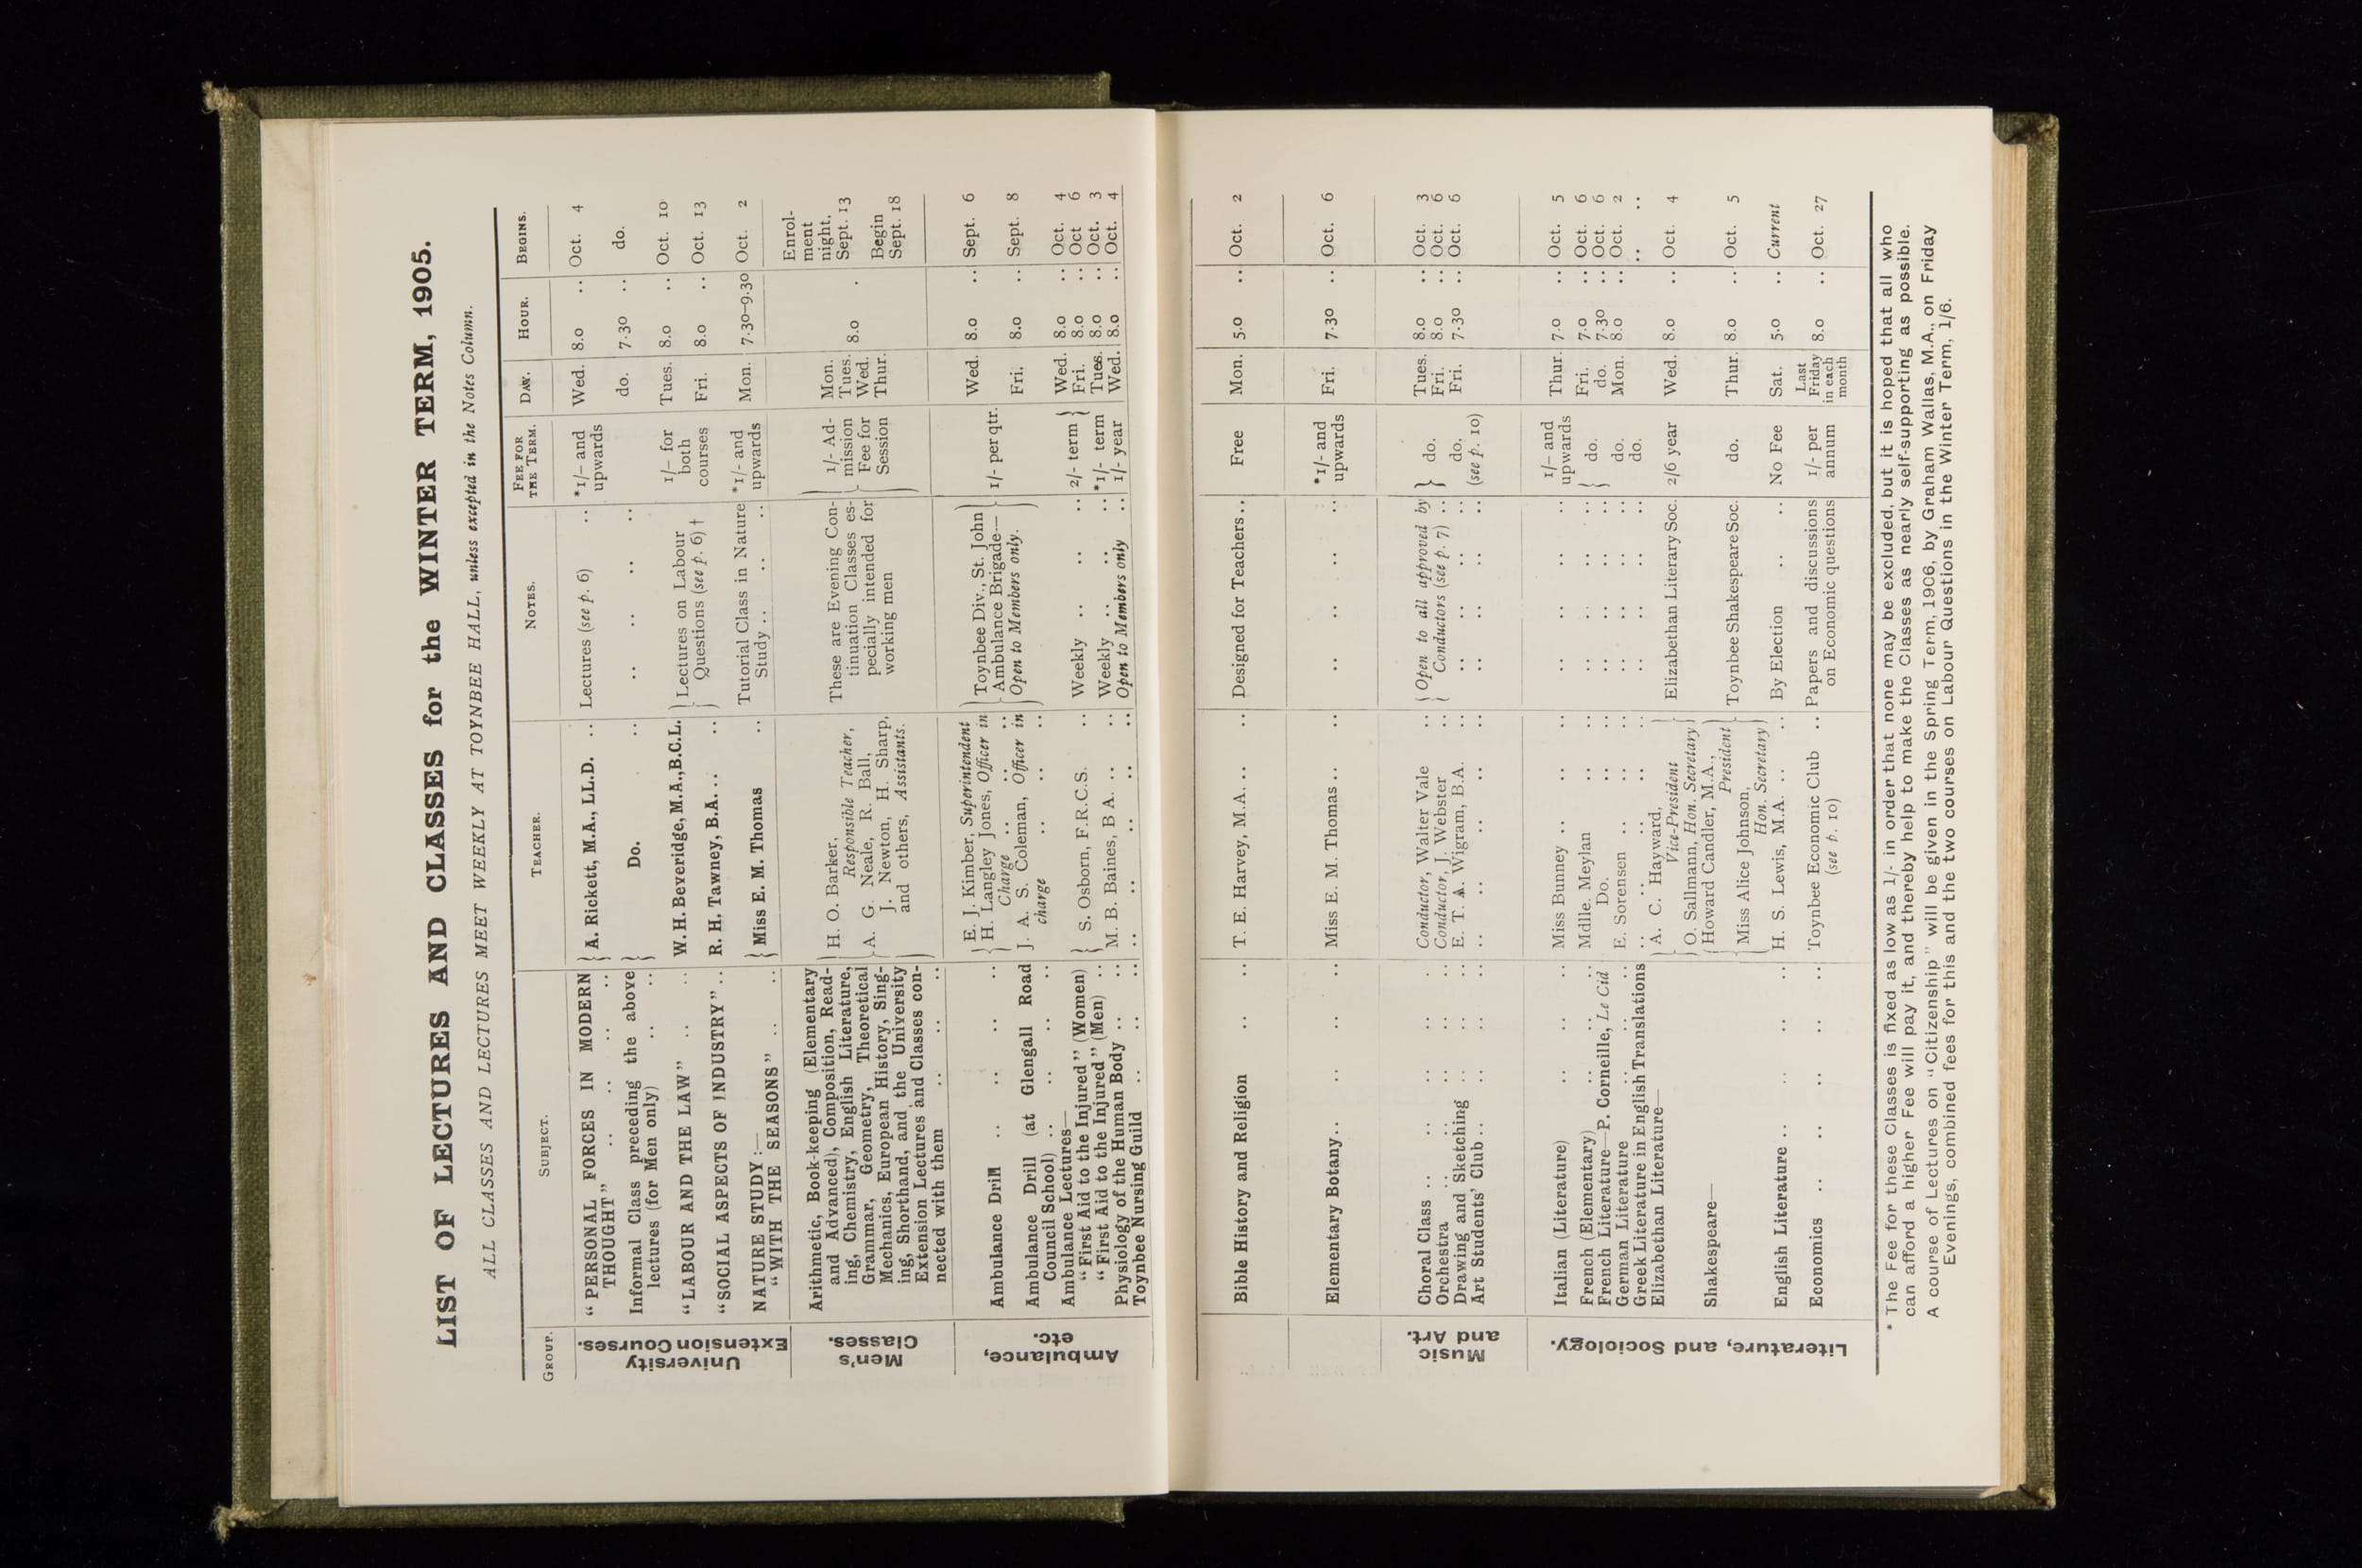 LIST OF LECTURES AND CLASSES for the WINTER TERM, 1905.
ALL CLASSES AND LECTURES MEET WEEKLY AT TOYNBEE HALL, unless excepted in the Notes Column.
GROUP. SUBJECT. TEACHER. NOTES. FEE FOR THE TERM. DAY. HOUR. BEGINS.
University Extension Courses.
“PERSONAL FORCES IN MODERN THOUGHT” .. .. .. .. A. Rickett, M.A., LL.D. .. Lectures (see p. 6) .. *1/- and upwards Wed. 8.0 .. Oct. 4
Informal Class preceding the above lectures (for Men only) .. .. Do. .. .. .. .. .. do. 7.30 .. do.
“LABOUR AND THE LAW” .. .. W. H. Beveridge, M.A., B.C.L. Lectures on Labour Questions (see p. 6) † 1/- for both courses Tues. 8.0 .. Oct. 10
“SOCIAL ASPECTS OF INDUSTRY” .. R. H. Tawney, B.A. .. .. Fri. 8.0 .. Oct. 13
NATURE STUDY:—
“WITH THE SEASONS” .. .. Miss E. M. Thomas .. Tutorial Class in Nature Study .. .. .. *1/- and upwards Mon. 7.30–9.30 Oct. 2
Men's Classes.
Arithmetic, Book-keeping (Elementary
and Advanced), Composition, Read-
ing, Chemistry, English Literature,
Grammar, Geometry, Theoretical
Mechanics, European History, Sing-
ing, Shorthand, and the University
Extension Lectures and Classes con-
nected with them .. .. ..
H. O. Barker,
Responsible Teacher,
A. G. Neale, R. Ball,
J. Newton, H. Sharp,
and others, Assistants.
These are Evening Con-
tinuation Classes es-
pecially intended for
working men
1/- Ad-
mission
Fee for
Session
Mon.
Tues.
Wed.
Thur.
8.0 .
Enrol-
ment
night,
Sept. 13
Begin
Sept. 18
Ambulance, etc.
Ambulance Drill .. .. .. .. E. J. Kimber, Superintendent
H. Langley Jones, Officer in Charge .. .. Toynbee Div., St. John Ambulance Brigade— Open to Members only. 1/- per qtr. Wed. 8.0 .. Sept. 6
Ambulance Drill (at Glengall Road Council School) .. .. .. J. A. S. Coleman, Officer in charge .. .. .. Fri. 8.0 .. Sept. 8
Ambulance Lectures—
“First Aid to the Injured” (Women)
“First Aid to the Injured” (Men) ..
S. Osborn, F.R.C.S. .. Weekly .. .. .. 2/- term
Wed. 8.0 .. Oct. 4
Fri. 8.0 .. Oct 6
Physiology of the Human Body .. .. M. B. Baines, B A. .. .. Weekly .. .. .. *1/- term Tues. 8.0 .. Oct. 3
Toynbee Nursing Guild .. .. .. .. .. .. .. Open to Members only .. 1/- year Wed. 8.0 .. Oct. 4
Bible History and Religion .. .. T. E. Harvey, M.A. .. .. Designed for Teachers .. Free Mon. 5.0 .. Oct. 2
Elementary Botany .. .. .. .. Miss E. M. Thomas .. .. .. .. .. .. *1/- and upwards Fri. 7.30 .. Oct. 6
Music and Art.
Choral Class .. .. .. .. Conductor, Walter Vale .. Open to all approved by Conductors (see p. 7) .. do. Tues. 8.0 .. Oct. 3
Orchestra .. .. .. .. Conductor, J. Webster .. Fri. 8.0 .. Oct. 6
Drawing and Sketching .. .. .. E. T. A. Wigram, B.A. .. .. .. .. .. do. Fri. 7.30 .. Oct. 6
Art Students' Club .. .. .. .. .. .. .. .. .. .. .. (see p. 10)
Literature, and Sociology.
Italian (Literature) .. .. .. Miss Bunney .. .. .. .. .. .. .. 1/- and upwards Thur. 7.0 .. Oct. 5
French (Elementary) .. .. .. Mdlle. Meylan .. .. .. .. .. .. do. Fri. 7.0 .. Oct. 6
French Literature—P. Corneille, Le Cid Do. .. .. .. .. .. .. do. 7.30 .. Oct. 6
German Literature .. .. .. E. Sorensen .. .. .. .. .. .. .. do. Mon. 8.0 .. Oct. 2
Greek Literature in English Translations .. .. .. .. .. .. .. .. .. do. .. ..
Elizabethan Literature— A. C. Hayward, Vice-President
O. Sallmann, Hon. Secretary Elizabethan Literary Soc. 2/6 year Wed. 8.0 .. Oct. 4
Shakespeare— Howard Candler, M.A., President
Miss Alice Johnson, Hon. Secretary Toynbee Shakespeare Soc. do. Thur. 8.0 .. Oct. 5
English Literature .. .. .. H. S. Lewis, M.A. .. .. By Election .. .. No Fee Sat. 5.0 .. Current
Economics .. .. .. .. Toynbee Economic Club .. (see p. 10) Papers and discussions on Economic questions 1/- per annum Last Friday in each month 8.0 .. Oct. 27
* The Fee for these Classes is fixed as low as 1/- in order that none may be excluded, but it is hoped that all who
can afford a higher Fee will pay it, and thereby help to make the Classes as nearly self-supporting as possible.
A course of Lectures on “Citizenship” will be given in the Spring Term, 1906, by Graham Wallas, M.A., on Friday
Evenings, combined fees for this and the two courses on Labour Questions in the Winter Term, 1/6.